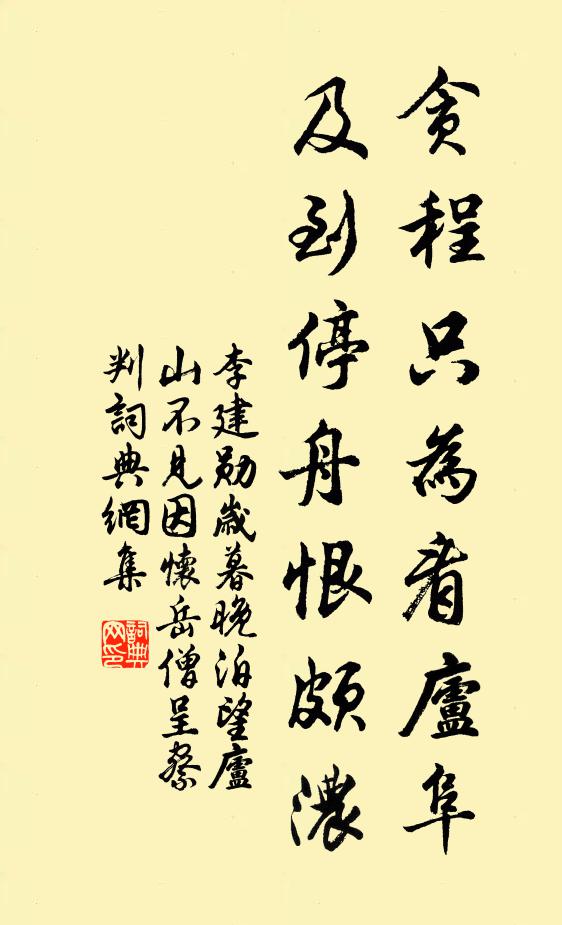 貪程只為看廬阜
及到停舟恨頗濃
李建勛歲暮晚泊望廬
山不見因懷岳僧呈察
判詞典網集
詞典
网印